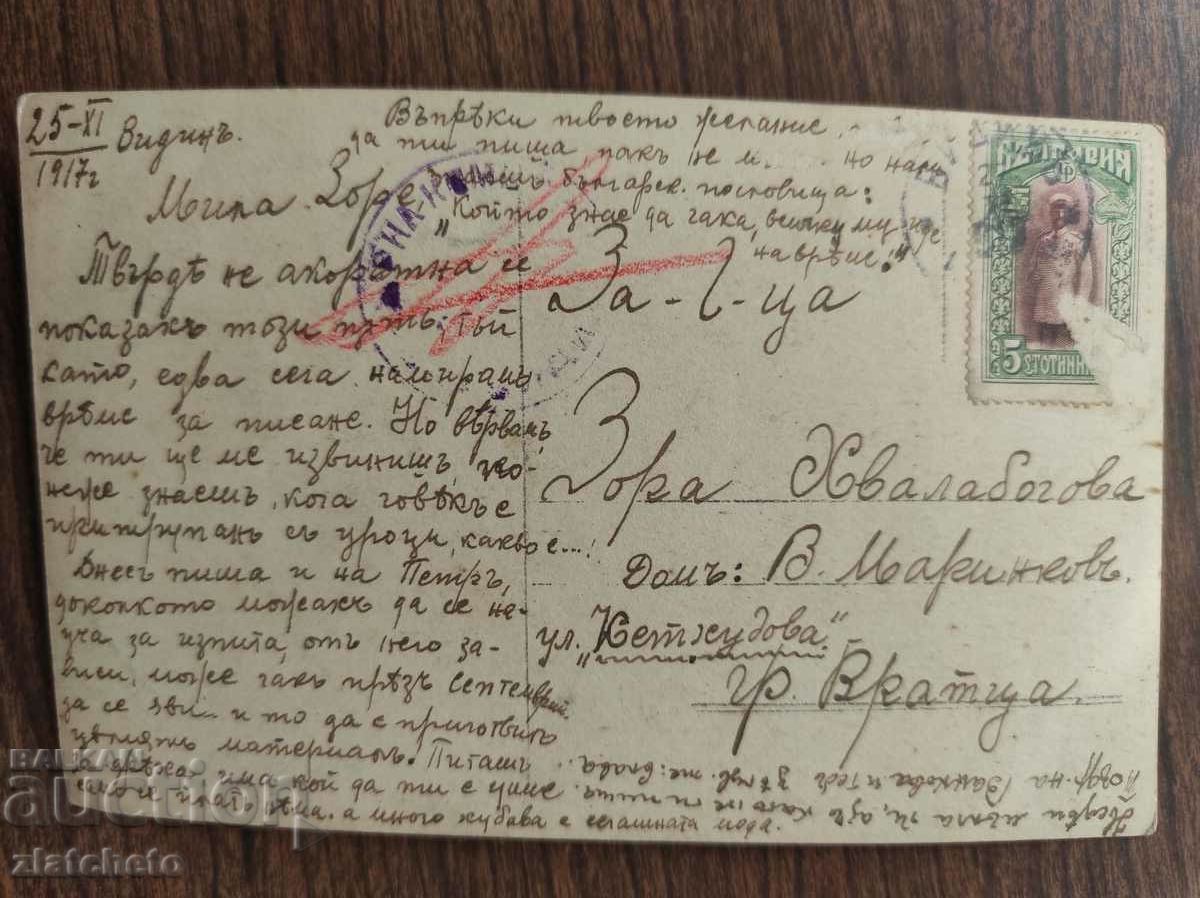 25-XI
1917г
Видинъ.
Въпрѣки твоето желание,
да ти пиша пакъ не но
знаешъ българск. пословица:
„Който знае да чака, всичко му иде
на врѣме!"
Мила Зоре,
Твърдѣ не акоратна се
показахъ този пѫть, тъй
като, едва сега намирамъ
врѣме за писане. Но вѣрвамъ,
че ти ще ме извинишъ, по-
неже знаешъ, кога човѣкъ е
притрупанъ съ уроци, какво е...!
Днесъ пиша и на Петръ,
доколкото можахъ да се на-
уча за изпита, отъ него за-
виси, може чакъ прѣзъ Септемврий
да се яви и то да е приготвилъ
цѣлиятъ материалъ. Питашъ
има кой да ти е учие
нѣма. а много хубава е сегашната мода.
За-Г-ца
Зора Хвалабогова
Домъ: В. Маринковъ.
ул. „Кетхудова"
гр. Вратца
Поздр. на Ванкова и тебъ
БЪЛГАРИЯ
5 СТОТИНКИ
BALKAN
auction
zlatcheto